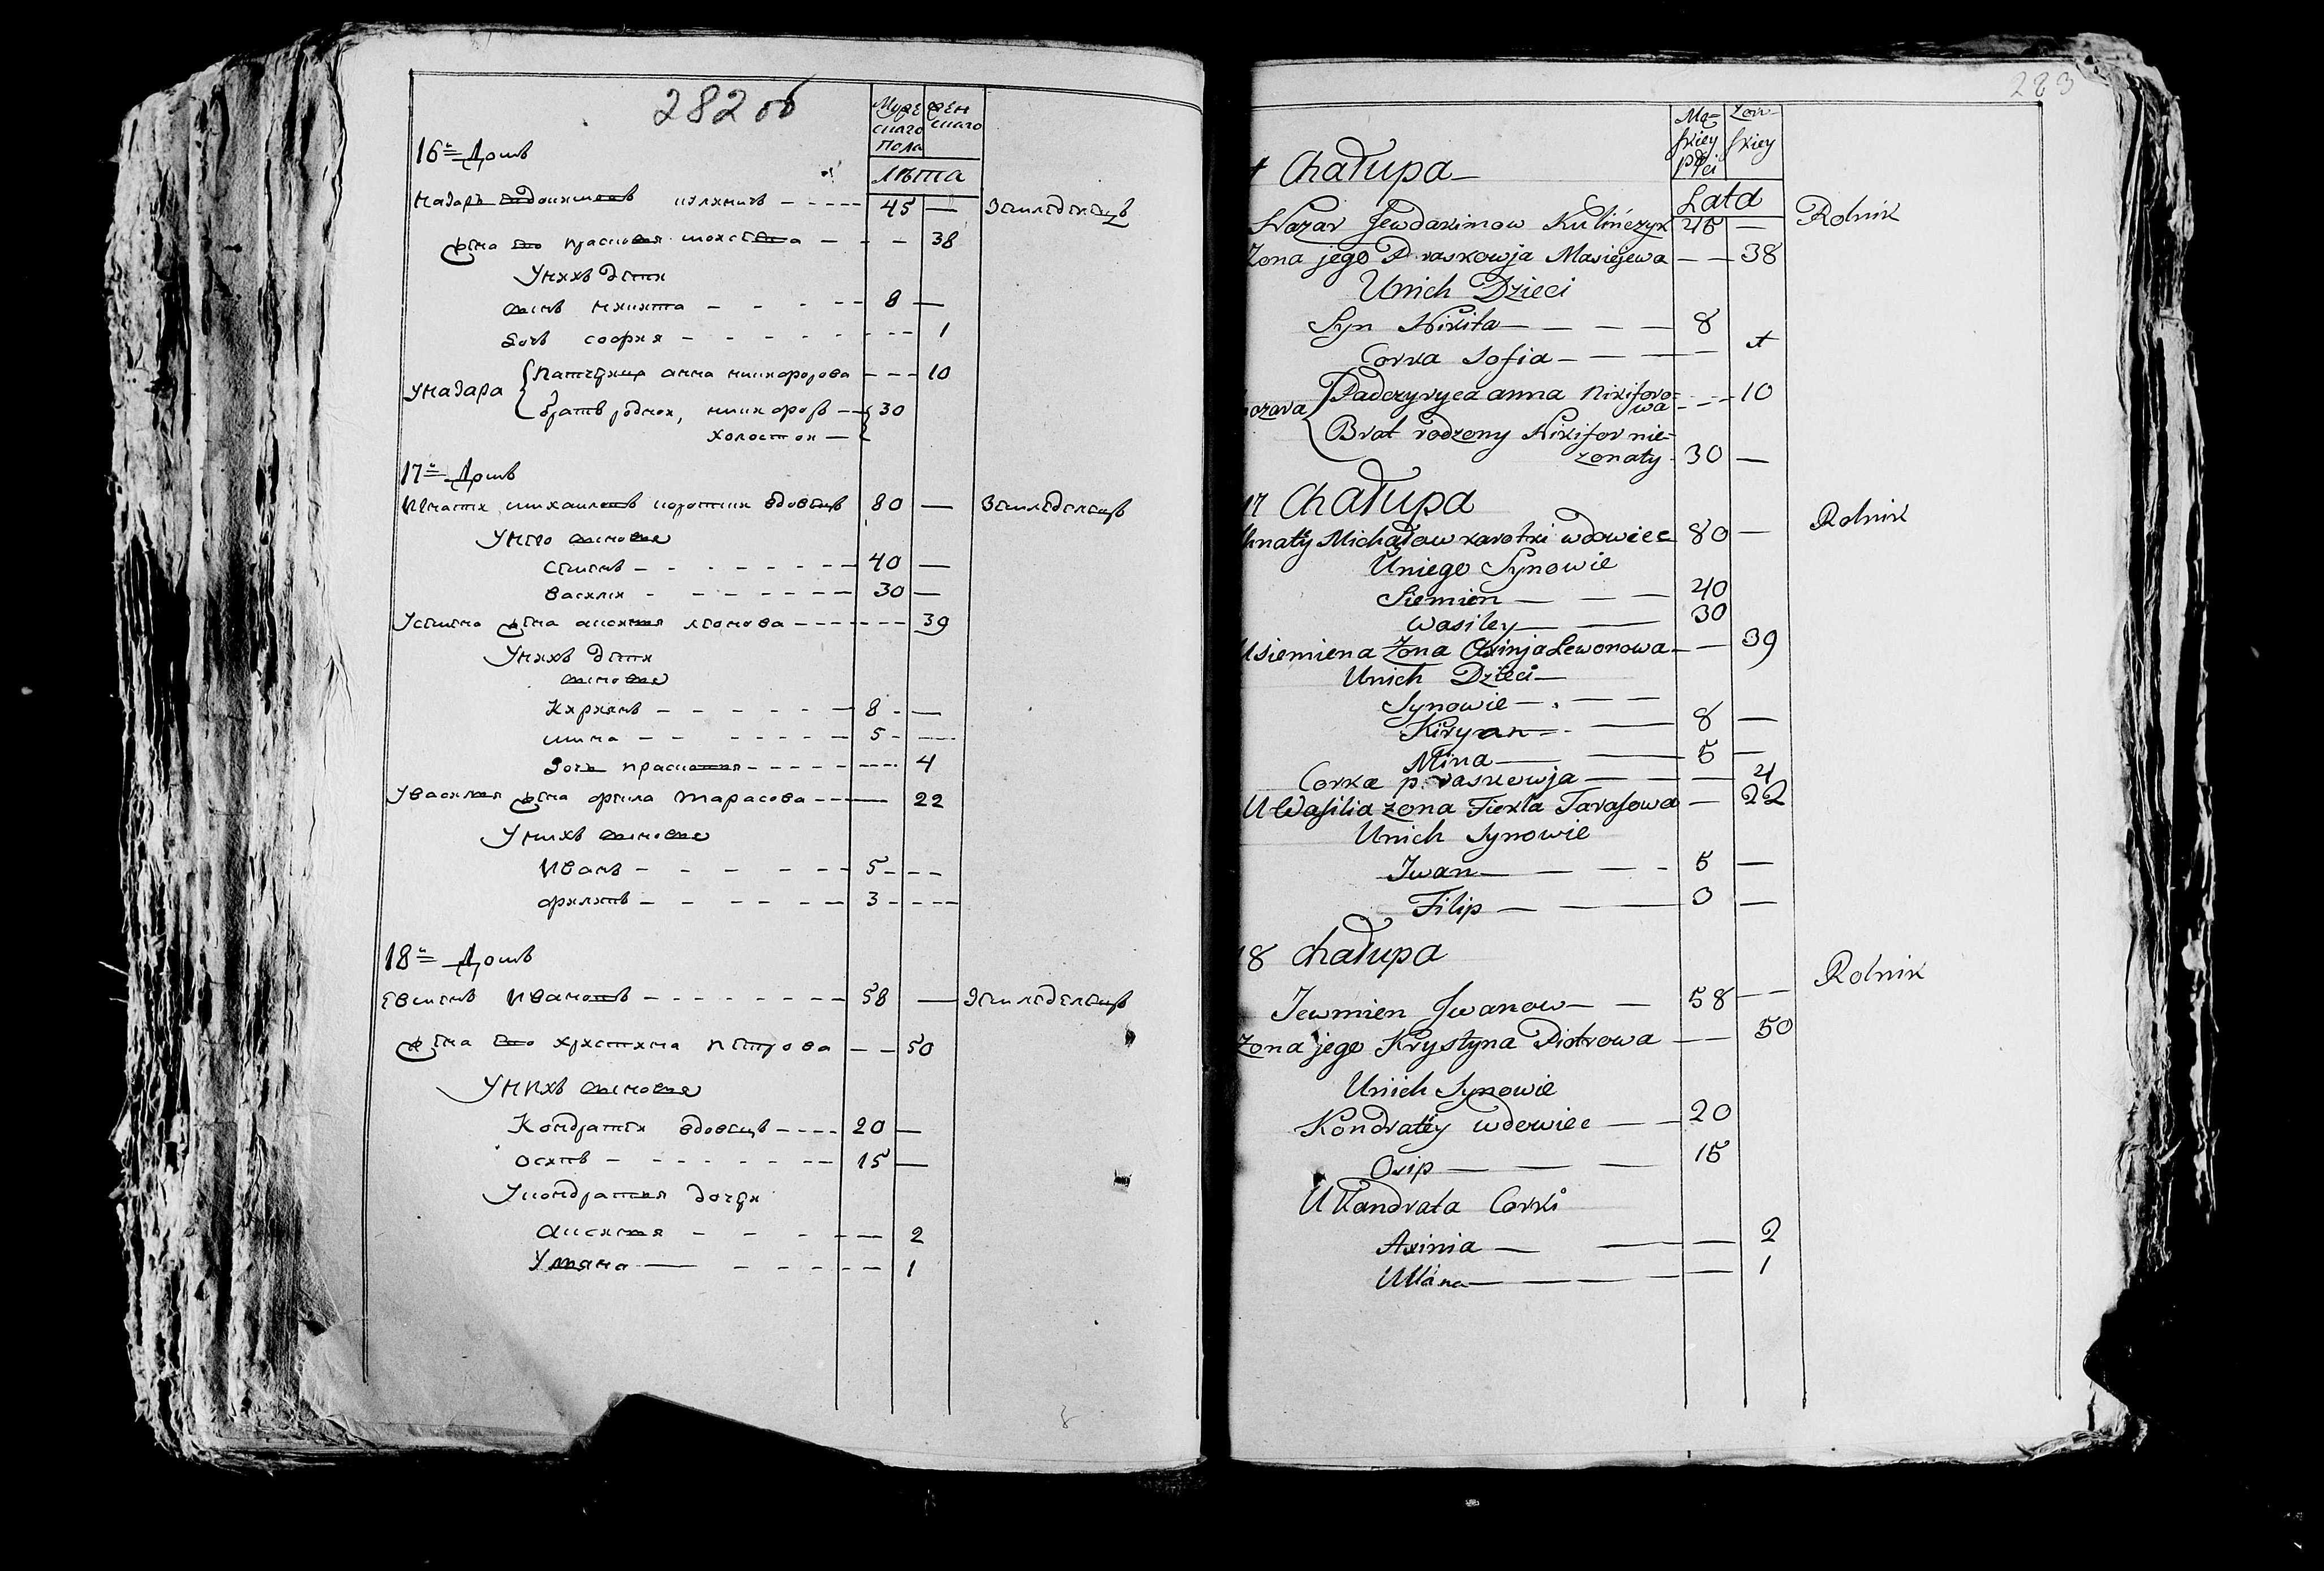 282 об
Мужескаго пола
Женскаго
Лѣта
16й Домъ
Назаръ Евдокимовъ 45 — Земледелецъ
Жена Его Прасковея Мокеева — — 38
У нихъ Дети
Сынъ Никита — 8 —
Дочь София — 1
У Назара Патчерица Анна Никифорова — 10
Братъ родной, Никифоръ — 30
холостой —
17й Домъ
Игнатей Михаиловъ Короткий вдовецъ 80 — Земледелецъ
У Него Сыновья
Семенъ — 40 —
Василей — 30 —
У Семена Жена Аксиния Леонова — 39
У нихъ Дети
Сыновья
Кириянъ — 8 —
Мина — 5 —
Дочь Прасковия — 4
У Василия Жена Фекла Тарасова — 22
У нихъ Сыновья
Иванъ — 5 —
Филипъ — 3 —
18й Домъ
Евменъ Ивановъ — 58 — Земледелецъ
Жена Его Христина Петрова — — 50
У нихъ Сыновья
Кондратей вдовецъ — 20 —
Осипъ — 15 —
У Кондратия дочери
Аксиния — 2
Уляна — 1
283
Męskiey płci
Żonskiey
Lata
Chałupa
Nazar Jewdakimow Kulińczyk 45 — Rolnik
Zona jego Praskowja Masiejewa — — 38
Unich Dzieci
Syn Nikita — 8
Corka Sofia —
Padczyryca anna Nikiforowa — 10
Brat rodzony Nikifor nie=
zonaty 30 —
17 Chałupa
Ihnaty Michałow karotki wdowiec 80 — Rolnik
Uniego Synowie
Siemion — 40
Wasiley — 30
Usiemiena Zona Axinja Lewonowa — — 39
Unich Dzieci —
Synowie —
Kiryan — 8 —
Mina — 5 —
Corka praskowja — 4
U Wasilia zona Fiekla Tarasowa — 22
Unich Synowie
Iwan — 5 —
Filip — 3 —
18 chałupa
Jewmien Iwanow — 58 — Rolnik
Zona jego Krystyna Piotrowa — 50
Unich Synowie
Kondratiy wdowiec — 20
Osip — 15
U Kandrata Corki
Axinia — 2
Ullana — 1